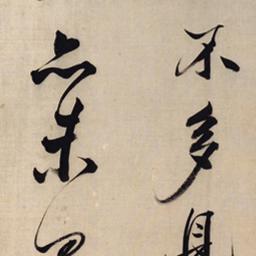 不多見
亦未